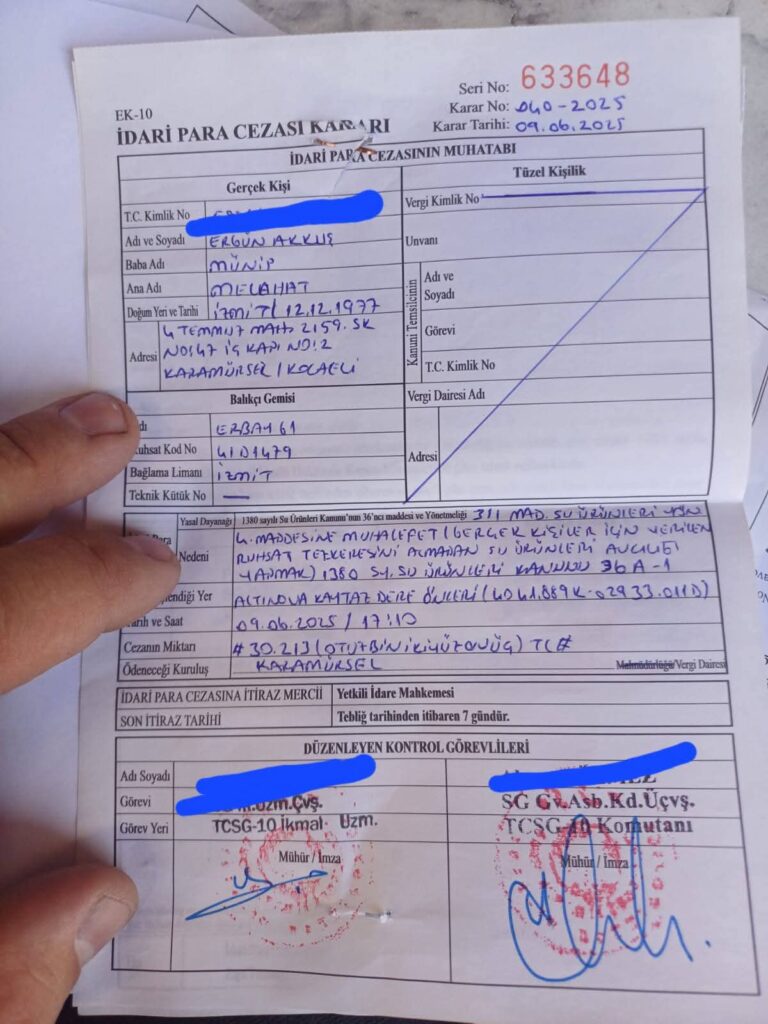 EK-10
Seri No: 633648
Karar No: 040-2025
İDARİ PARA CEZASI KARARI
Karar Tarihi: 09.06.2025
İDARİ PARA CEZASININ MUHATABI
Gerçek Kişi
Tüzel Kişilik
T.C. Kimlik No
Vergi Kimlik No
Adı ve Soyadı ERGÜN AKKUŞ
Unvanı
Baba Adı MÜNİP
Ana Adı MELAHAT
Kanuni Temsilcinin
Adı ve Soyadı
Doğum Yeri ve Tarihi İZMİT / 12.12.1977
Görevi
Adresi 4 TEMMUZ MAH. 2159. SK
NO:47 İÇ KAPI NO:2
KARAMÜRSEL / KOCAELİ
T.C. Kimlik No
Vergi Dairesi Adı
Balıkçı Gemisi
ERBAY 61
Adresi
Ruhsat Kod No 41D1479
Bağlama Limanı İZMİT
Teknik Kütük No —
Yasal Dayanağı 1380 sayılı Su Ürünleri Kanunu'nun 36'ncı maddesi ve Yönetmeliği 3II MAD. SU ÜRÜNLERİ YÖN
Nedeni 4. MADDESİNE MUHALEFET (GERÇEK KİŞİLER İÇİN VERİLEN
RUHSAT TEZKERESİNİ ALMADAN SU ÜRÜNLERİ AVCILIĞI
YAPMAK) 1380 SY. SU ÜRÜNLERİ KANUNU 36 A-1
Yer ALTINOVA KAYTAZ DERE ÖNLERİ (40 41.889K-02933.011D)
Tarih ve Saat 09.06.2025 / 17:10
Cezanın Miktarı #30.213 (OTUZBİNİKİYÜZONÜÇ) TL#
Ödeneceği Kuruluş KARAMÜRSEL Malmüdürlüğü/Vergi Dairesi
İDARİ PARA CEZASINA İTİRAZ MERCİİ Yetkili İdare Mahkemesi
SON İTİRAZ TARİHİ Tebliğ tarihinden itibaren 7 gündür.
DÜZENLEYEN KONTROL GÖREVLİLERİ
Adı Soyadı
Görevi Uzm.Çvş. SG Gv.Asb.Kd.Üçvş.
Görev Yeri TCSG-10 İkmal Uzm. TCSG-10 Komutanı
Mühür / İmza Mühür / İmza